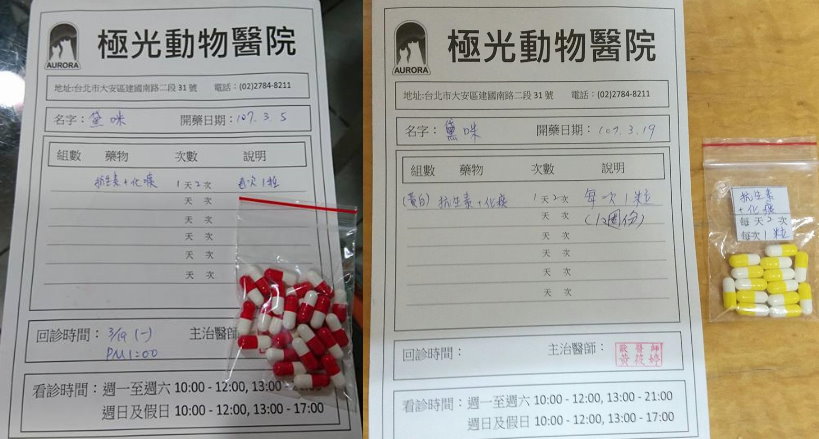 AURORA
極光動物醫院
地址:台北市大安區建國南路二段31號 電話：(02)2784-8211
名字：黛咪 開藥日期：107.3.5
組數 藥物 次數 說明
抗生素+化痰 1天2次 每次1粒
天 次
天 次
天 次
天 次
天 次
回診時間：3/19 (一) 主治醫師
PM1:00
看診時間：週一至週六 10:00 - 12:00, 13:00 - 21:00
週日及假日 10:00 - 12:00, 13:00 - 17:00
AURORA
極光動物醫院
地址:台北市大安區建國南路二段31號 電話：(02)2784-8211
名字：黛咪 開藥日期：107.3.19
組數 藥物 次數 說明
(黃白) 抗生素+化痰 1天2次 每次1粒
天 次 (12週份)
天 次
天 次
天 次
天 次
回診時間： 主治醫師：
獸醫師
黃筱婷
看診時間：週一至週六 10:00 - 12:00, 13:00 - 21:00
週日及假日 10:00 - 12:00, 13:00 - 17:00
抗生素
+化痰
每天2次
每次1粒